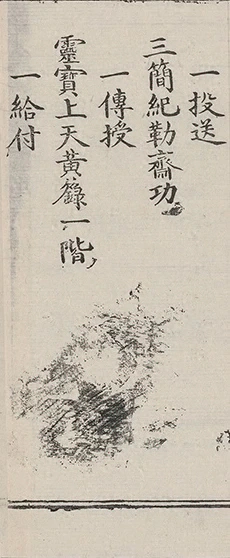 一投送
三簡紀勒齋功
一傳授
靈寶上天黃籙一階
一給付